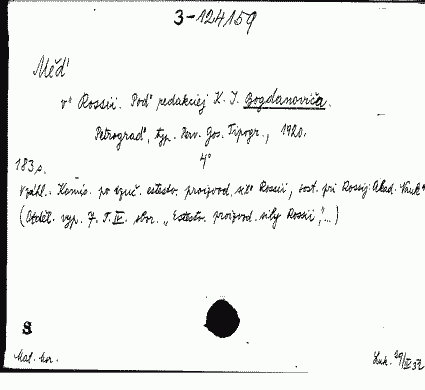 3-124159
Měď
v" Rossii. Pod" redakciej K. I. Bogdanoviča.
Petrograd", typ. Perv. Gos. Tipogr., 1920.
4°
183 s.
V záhl.: Komis. po izuč. estestv. proizvod. sil" Rossii, sost. pri Rossij. Akad. Nauk"
(Otděl. vyp. 7. T. IV. sbor. „Estestv. proizvod. sily Rossii",...)
S
Mal. kor.
Luk. 29/IX 32